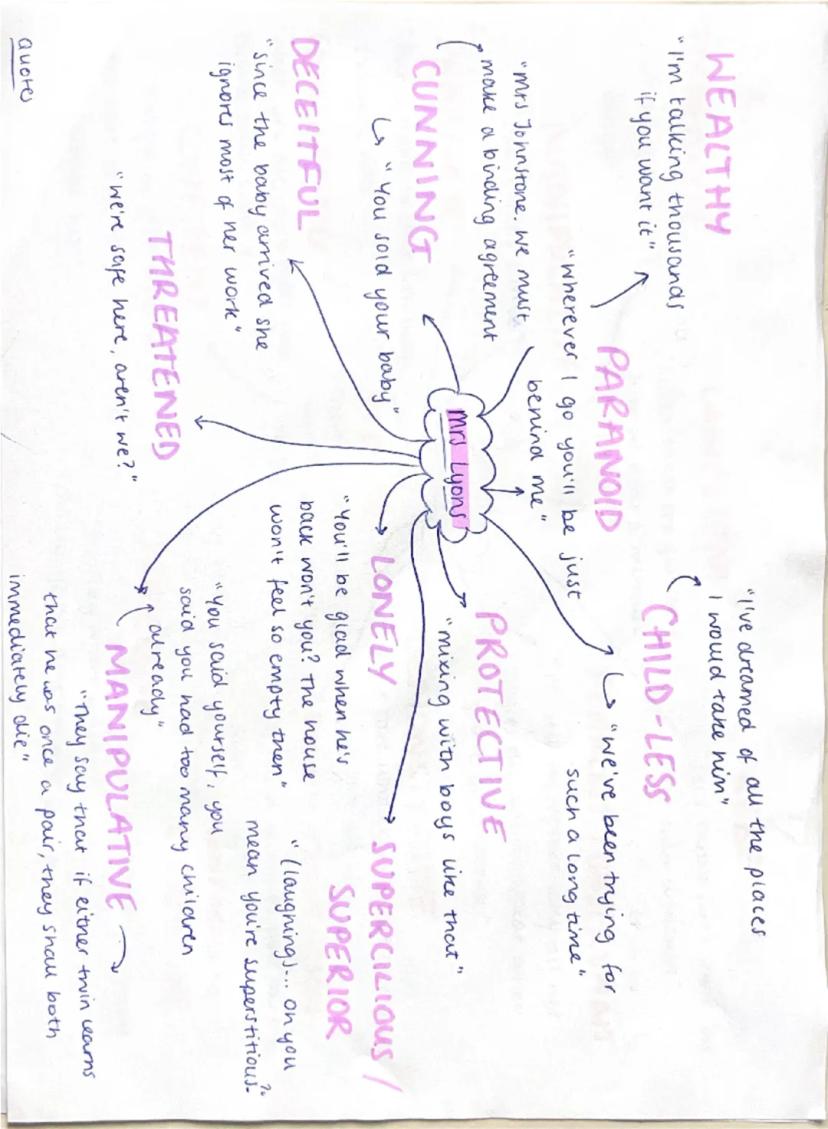 Quotes
WEALTHY
"I'm talking thousands
if you want it"
PARANOID
"Wherever I go you'll be just
behind me"
"I've dreamed of all the places
I would take him"
CHILD-LESS
"We've been trying for
such a long time"
"Mrs Johnstone. We must
make a binding agreement
CUNNING
"You sold your baby"
Mrs Lyons
PROTECTIVE
"mixing with boys like that"
DECEITFUL
"since the baby arrived she
ignores most of her work"
LONELY
"You'll be glad when he's
back won't you? The house
won't feel so empty then"
SUPERCILIOUS /
SUPERIOR
"(laughing)... oh you
mean you're superstitious?"
THREATENED
"we're safe here, aren't we?"
"You said yourself, you
said you had too many children
already"
MANIPULATIVE
"They say that if either twin learns
that he was once a pair, they shall both
immediately die"